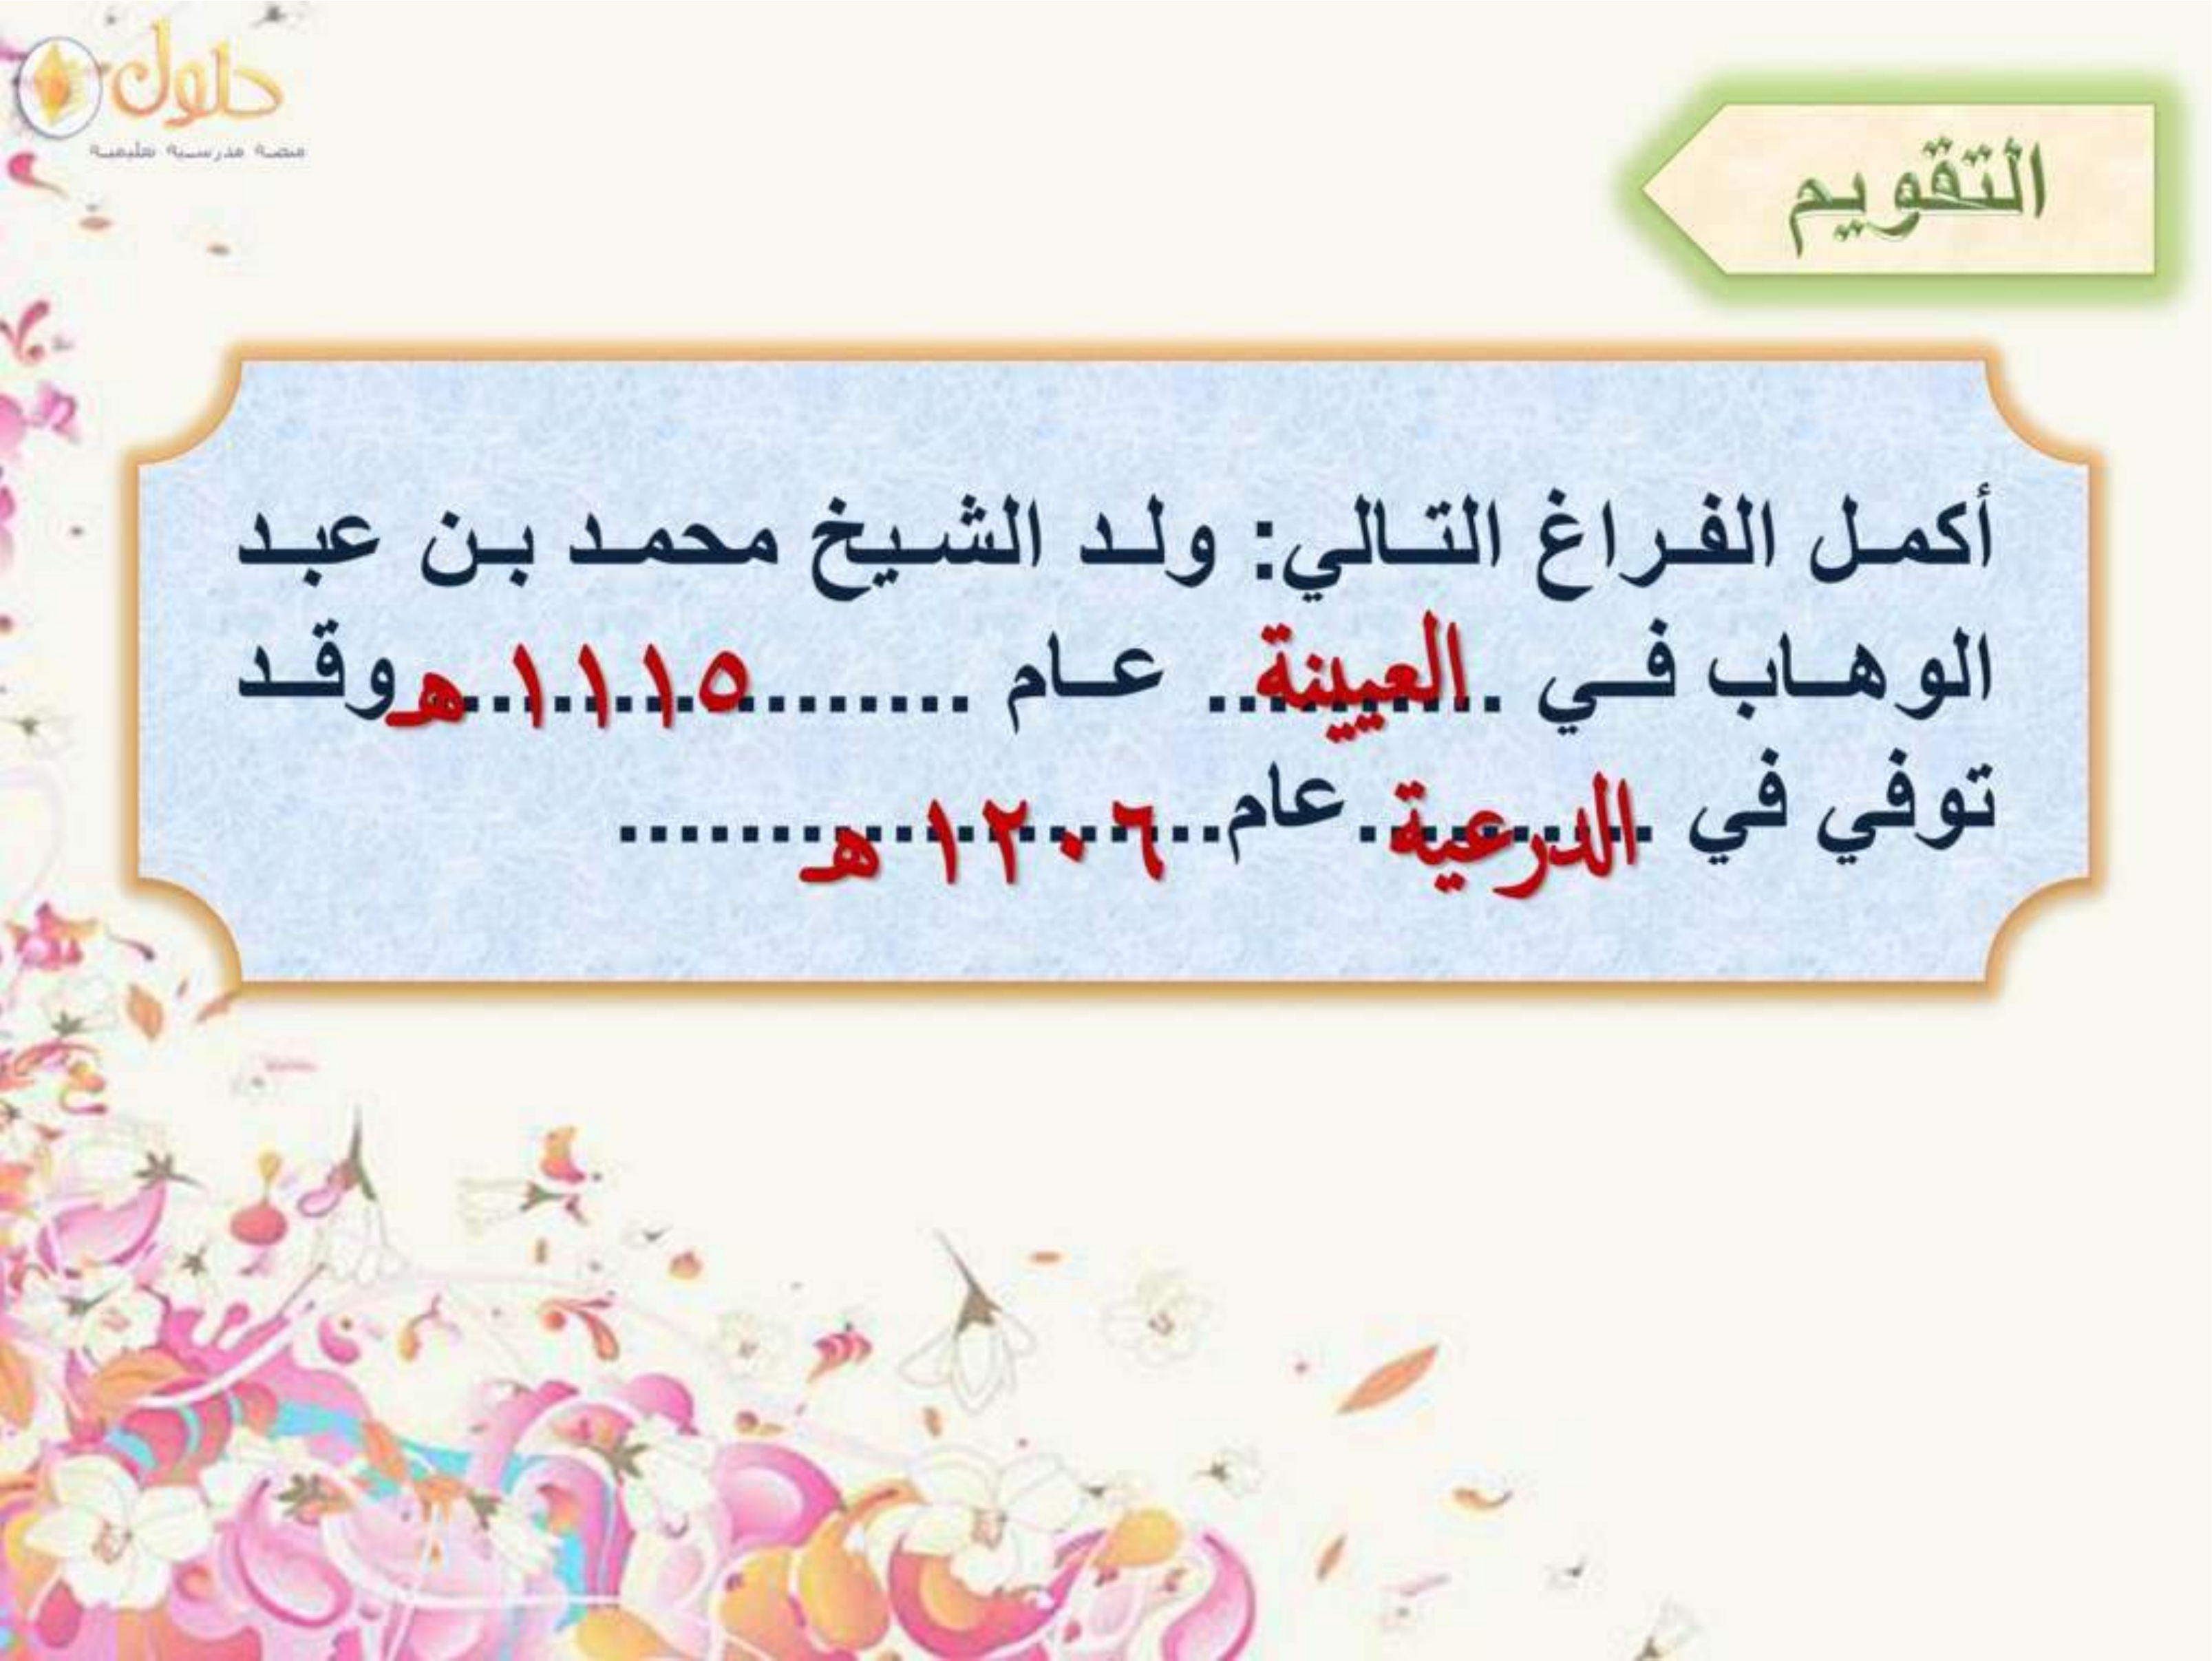 حلول
منصة مدرسية تعليمية
التقويم
أكمل الفراغ التالي: ولد الشيخ محمد بن عبد
الوهاب في ..العيينة.. عام ........١١١٥ هـ وقد
توفي في ..الدرعية.. عام..١٢٠٦ هـ........